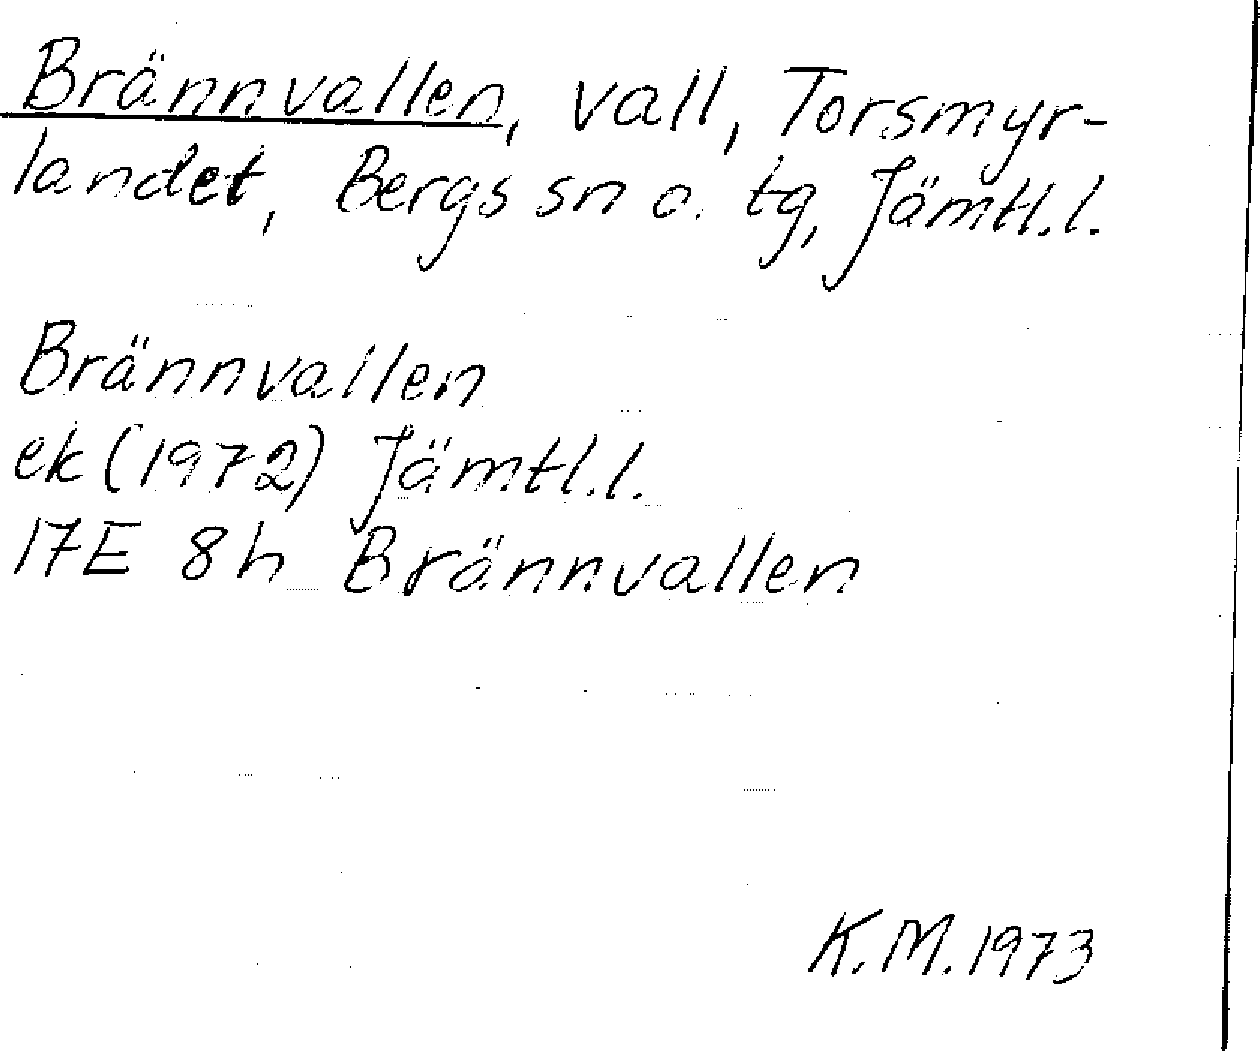 Brännvallen, vall, Torsmyr-
landet, Bergs sn o. tg, Jämtl.l.
Brännvallen
ek (1972) Jämtl.l.
17E 8h Brännvallen
K.M. 1973